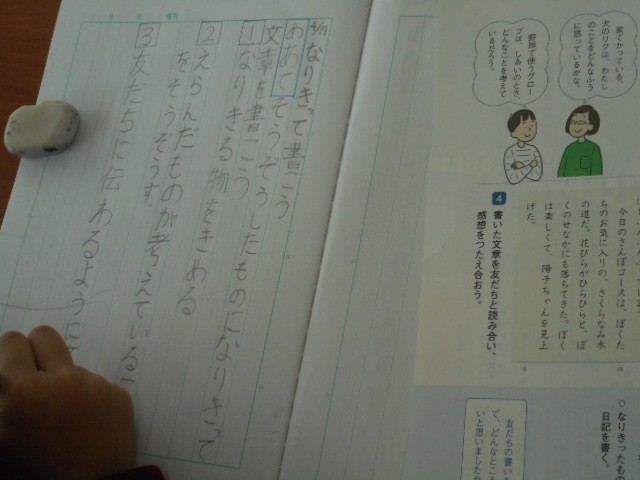 なりきって書こう
めあて そうぞうしたものになりきって
文章を書こう
1 なりきる物をきめる
2 えらんだものが考えているこ
をそうぞうす.
3 友だちに伝わるように
家でかっている、
犬のリクは、わたし
のことをどんなふう
に思っているかな。
野球で使うグロー
ブは、しあいのとき、
どんなことを考えて
いるだろう。
今日のさんぽコースは、ぼくた
ちのお気に入りの、さくらなみ木
の道だ。花びらがひらひらと、ぼ
くのせなかにも落ちてきた。ぼく
は楽しくて、陽子ちゃんを見上
げた。
4 書いた文章を友だちと読み合い、
感想をつたえ合おう。
○ なりきったもの
日記を書く。
友だちの書い
て、どんなところ
いと思いました